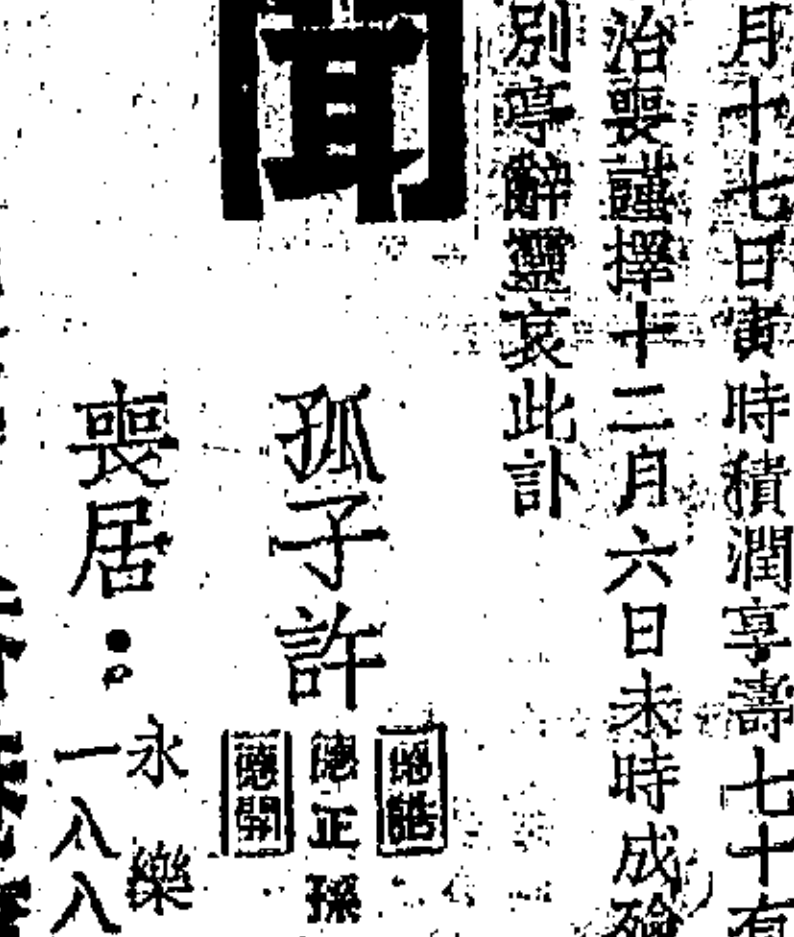 月十七日寅時積潤享壽七十有
治喪謹擇十二月六日未時成殮
別亭辭靈哀此訃
聞
孤子許
德正孫
喪居：
永樂
一八八